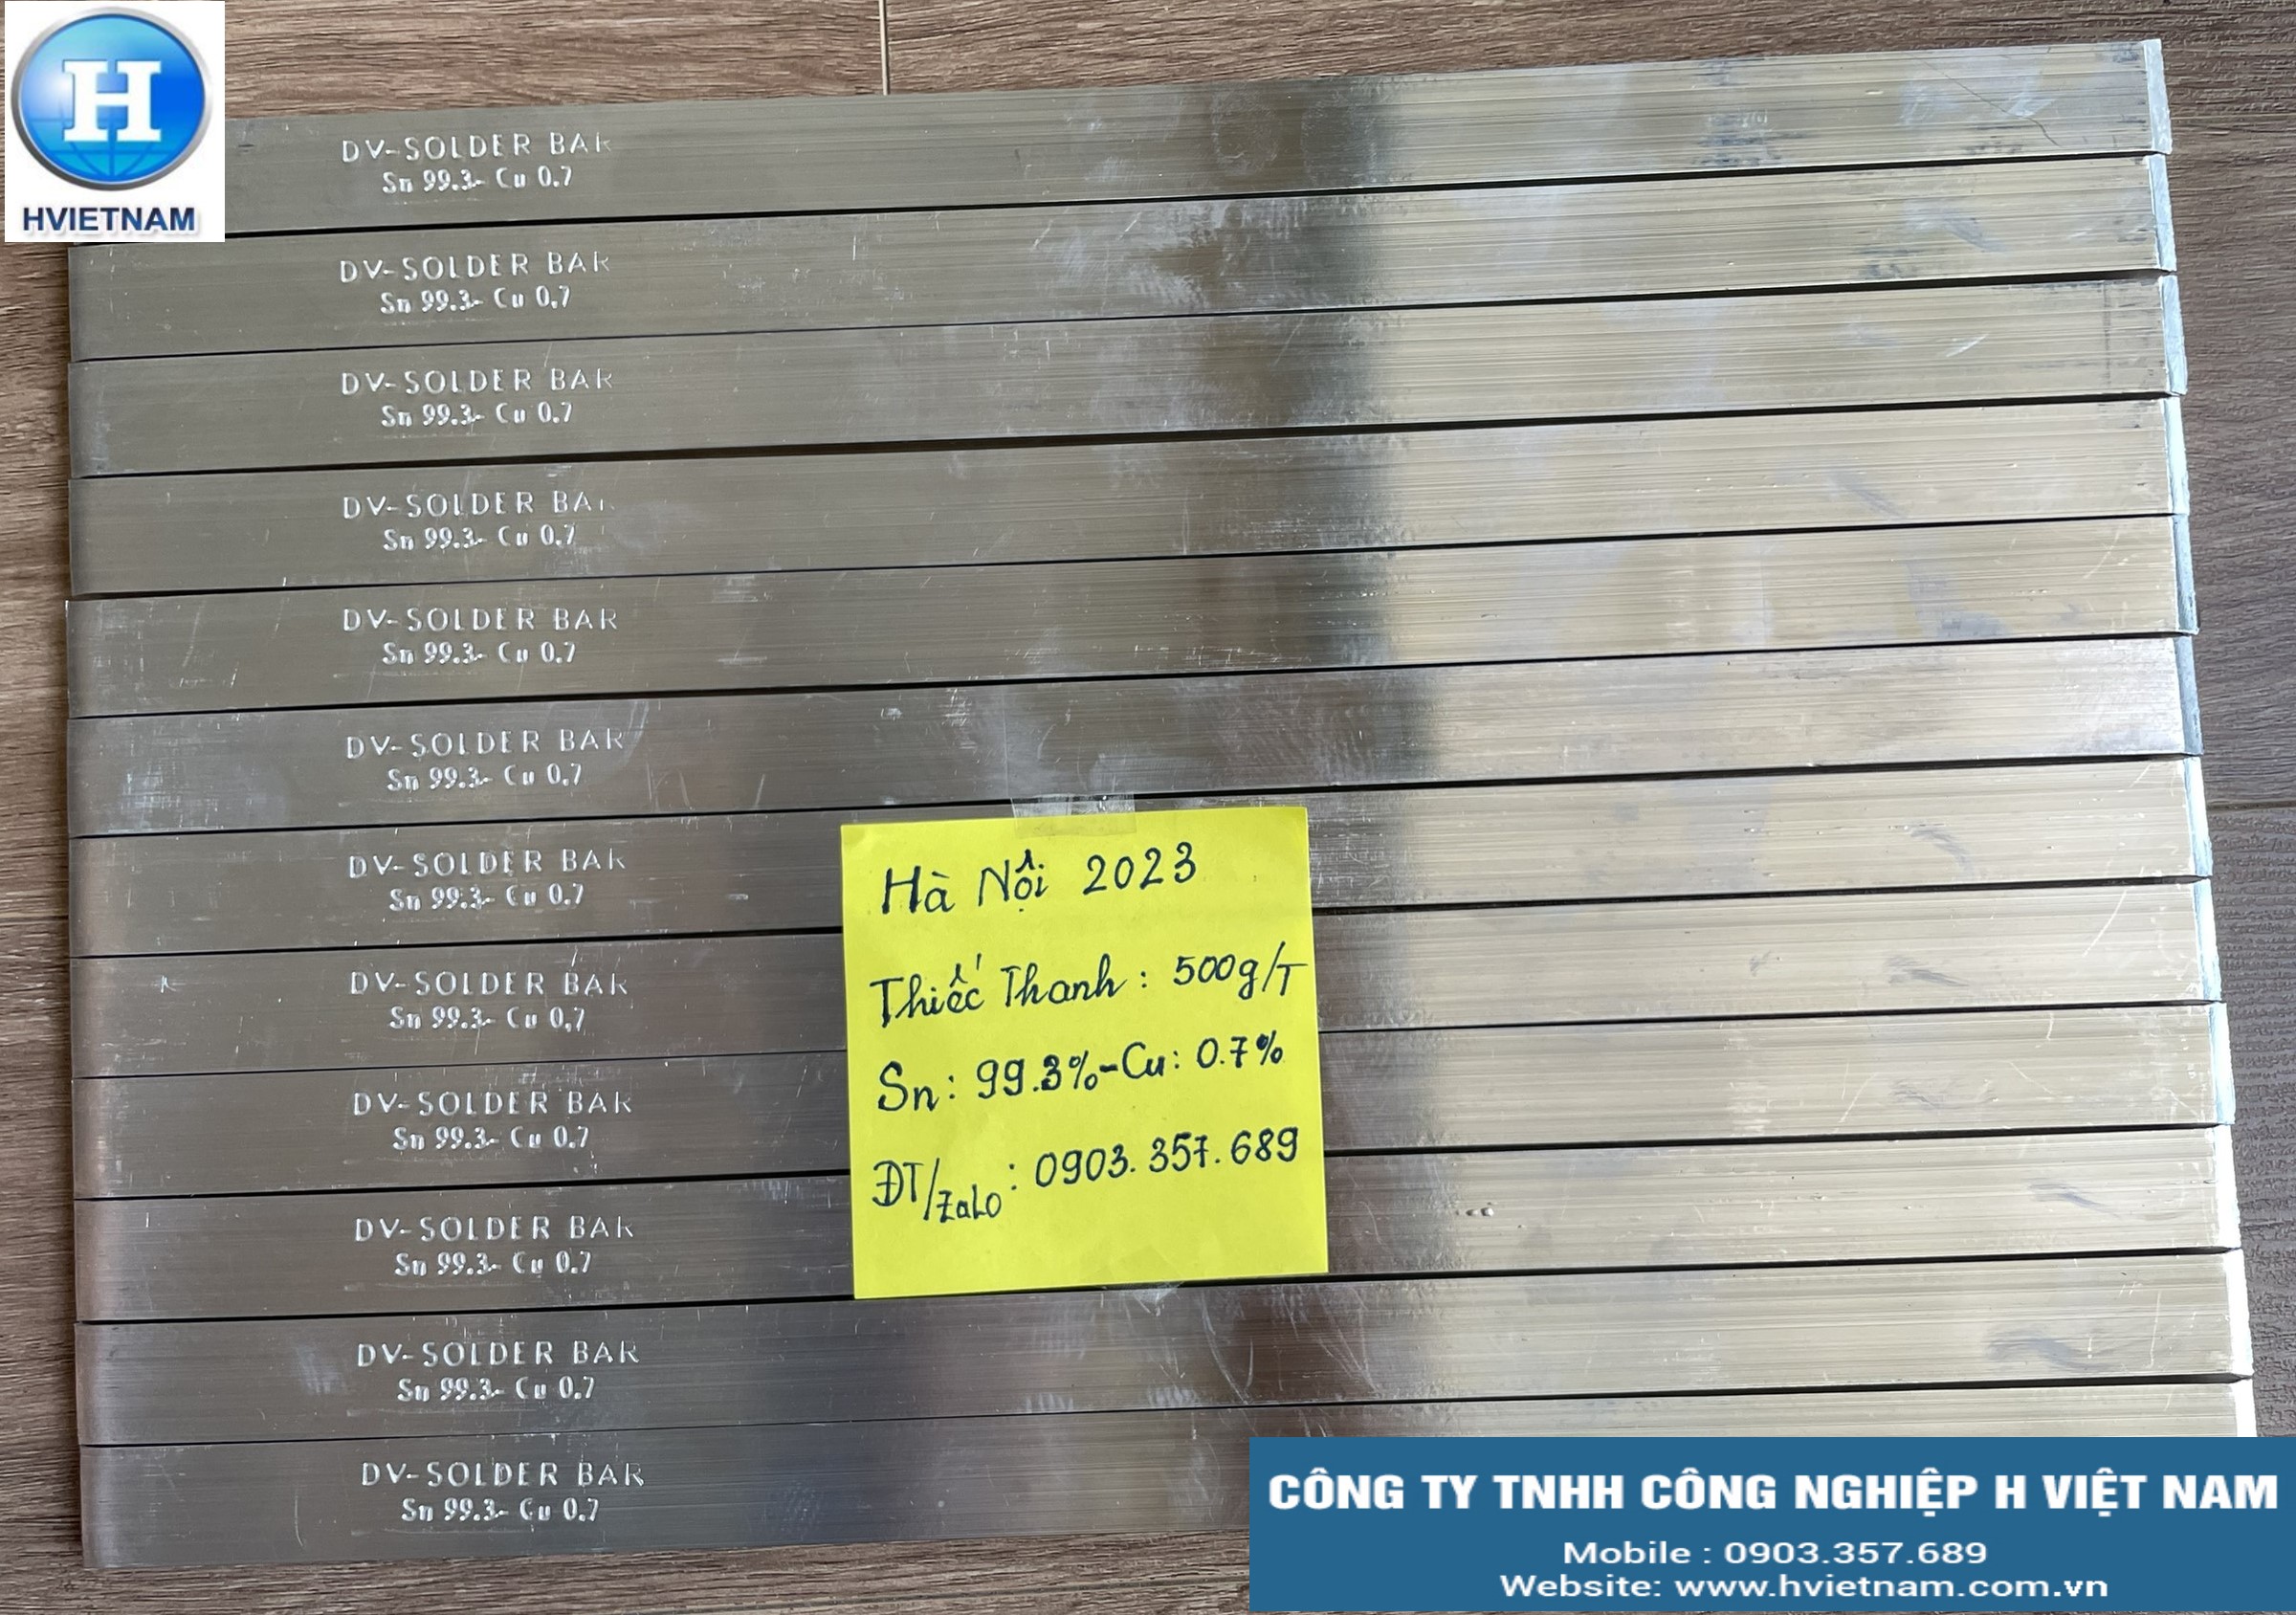 H
HVIETNAM
DV-SOLDER BAR
Sn 99.3- Cu 0.7
DV-SOLDER BAR
Sn 99.3- Cu 0.7
DV-SOLDER BAR
Sn 99.3- Cu 0.7
DV-SOLDER BAR
Sn 99.3- Cu 0.7
DV-SOLDER BAR
Sn 99.3- Cu 0.7
DV-SOLDER BAR
Sn 99.3- Cu 0.7
DV-SOLDER BAR
Sn 99.3- Cu 0.7
DV-SOLDER BAR
Sn 99.3- Cu 0.7
DV-SOLDER BAR
Sn 99.3- Cu 0.7
DV-SOLDER BAR
Sn 99.3- Cu 0.7
DV-SOLDER BAR
Sn 99.3- Cu 0.7
DV-SOLDER BAR
Sn 99.3- Cu 0.7
Hà Nội 2023
Thiếc Thanh: 500g/T
Sn: 99.3%-Cu: 0.7%
ĐT/zalo: 0903.357.689
CÔNG TY TNHH CÔNG NGHIỆP H VIỆT NAM
Mobile : 0903.357.689
Website: www.hvietnam.com.vn